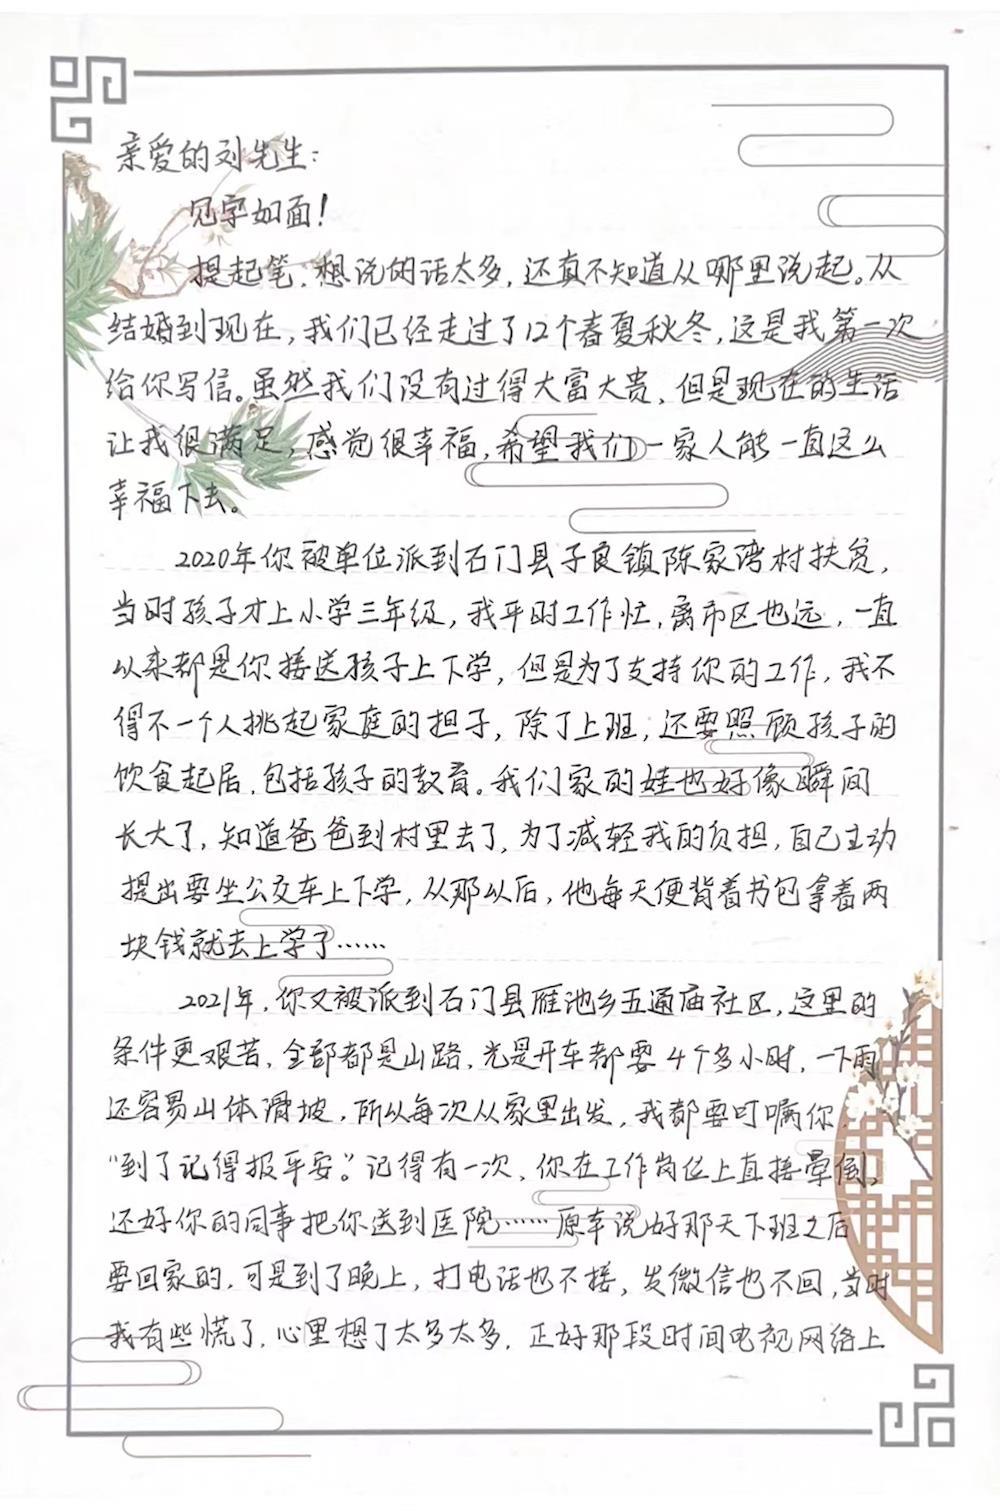 亲爱的刘先生：
见字如面！
提起笔，想说的话太多，还真不知道从哪里说起。从
结婚到现在，我们已经走过了12个春夏秋冬，这是我第一次
给你写信。虽然我们没有过得大富大贵，但是现在的生活
让我很满足，感觉很幸福，希望我们一家人能一直这么
幸福下去。
2020年你被单位派到石门县子良镇陈家湾村扶贫，
当时孩子才上小学三年级，我平时工作忙，离市区也远，一直
以来都是你接送孩子上下学，但是为了支持你的工作，我不
得不一个人挑起家庭的担子，除了上班，还要照顾孩子的
饮食起居，包括孩子的教育。我们家的娃也好像瞬间
长大了，知道爸爸到村里去了，为了减轻我的负担，自己主动
提出要坐公交车上下学，从那以后，他每天便背着书包拿着两
块钱就去上学了……
2021年，你又被派到石门县雁池乡五通庙社区，这里的
条件更艰苦，全部都是山路，光是开车都要4个多小时，一下雨
还容易山体滑坡，所以每次从家里出发，我都要叮嘱你，
“到了记得报平安。”记得有一次，你在工作岗位上直接晕倒，
还好你的同事把你送到医院……原车说好那天下班之后
要回家的，可是到了晚上，打电话也不接，发微信也不回，当时
我有些慌了，心里想了太多太多，正好那段时间电视网络上